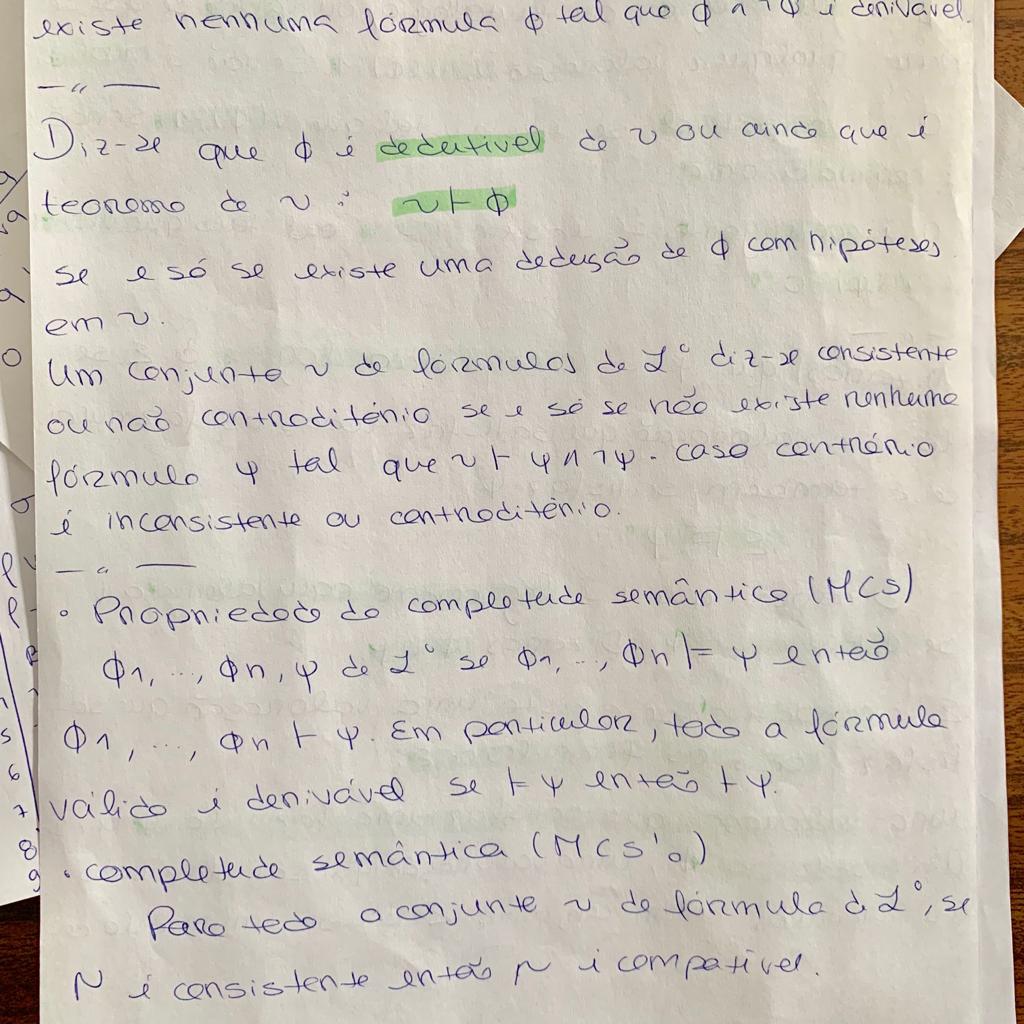 existe nenhuma fórmula φ tal que φ ∧ ¬φ é derivável.
— 〃 —
Diz-se que φ é dedutível de ν ou ainda que é
teorema de ν : ν ⊢ φ
se e só se existe uma dedução de φ com hipóteses
em ν.
Um conjunto ν de fórmulas de L° diz-se consistente
ou não contraditório se e só se não existe nenhuma
fórmula ψ tal que ν ⊢ ψ ∧ ¬ψ. caso contrário
é inconsistente ou contraditório.
— 〃 —
• Propriedade de completude semântica (MCS)
φ1, ..., φn, ψ de L° se φ1, ..., φn ⊨ ψ então
φ1, ..., φn ⊢ ψ. Em particular, toda a fórmula
válida é derivável se ⊨ ψ então ⊢ ψ.
• completude semântica (MCS'o)
Para todo o conjunto ν de fórmula de L°, se
ν é consistente então ν é compatível.